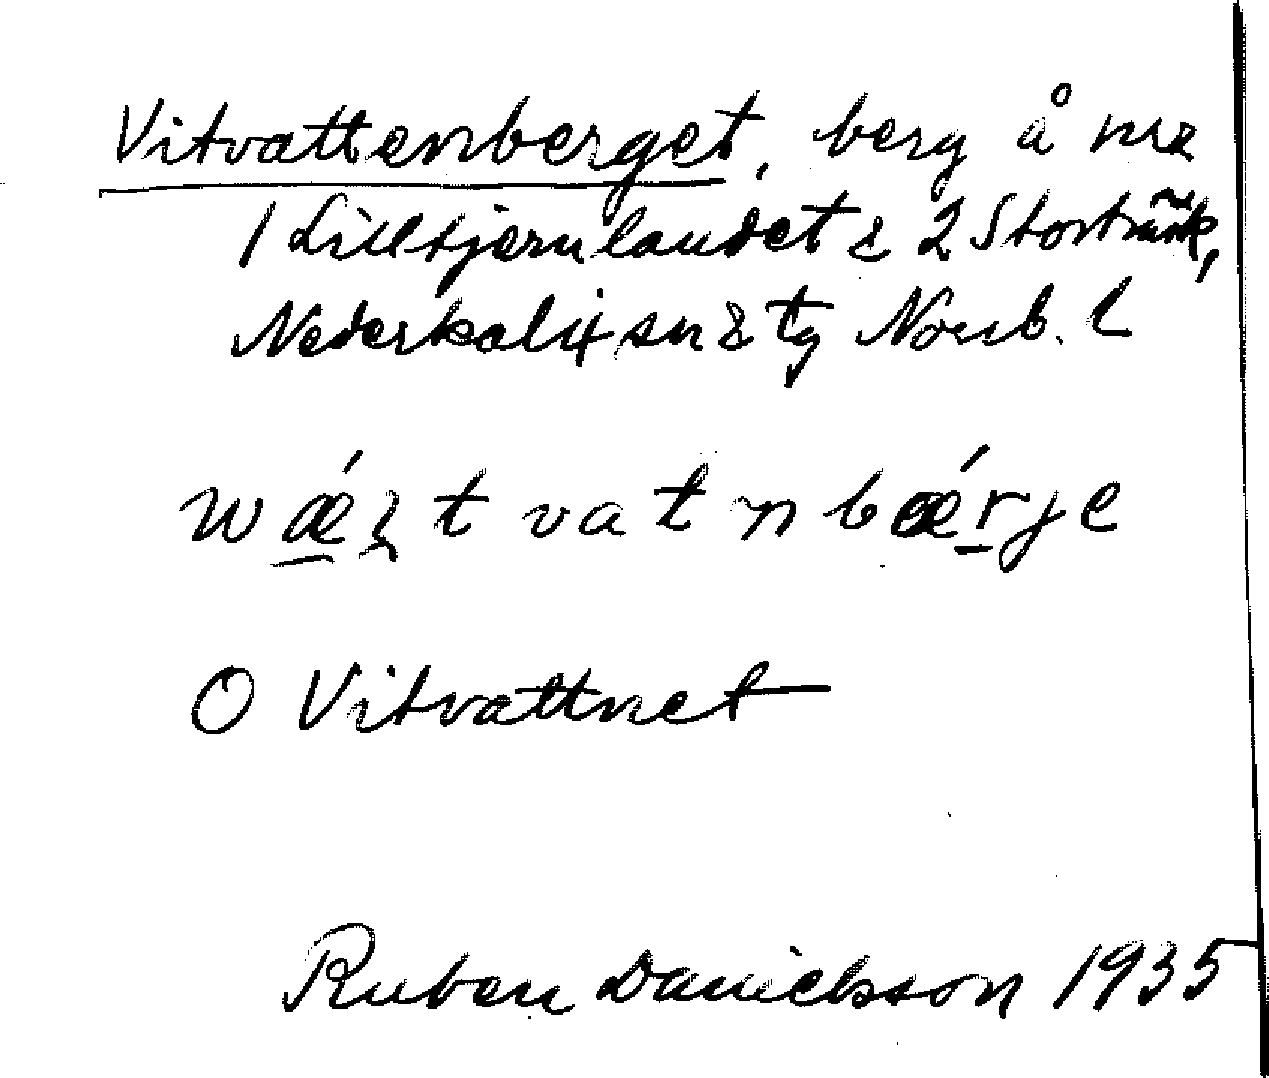 Vitvattenberget, berg å nre
1 Lilltjernlandet & 2 Storträsk,
Nederkalix sn & tg Norrb. l
vatnbǽrje
O Vitvattnet
Ruben Danielsson 1935